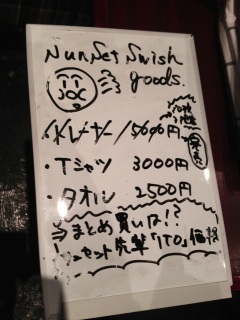 SunSet Swish
goods.
JOC
・トレーナー 5000円
・Tシャツ 3000円
・タオル 2500円
まとめ買いは!?
サンセット先輩「ITO」価格